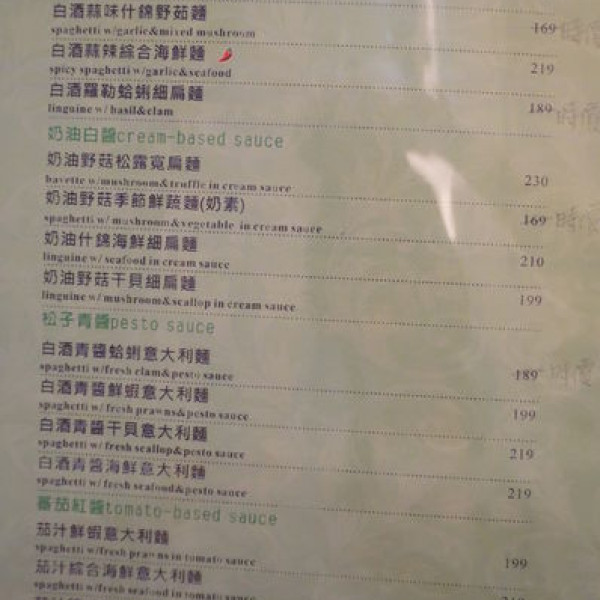 白酒蒜味什錦野茹麵
spaghetti w/garlic&mixed mushroom 169 時價
白酒蒜辣綜合海鮮麵
spicy spaghetti w/garlic&seafood 219
白酒羅勒蛤蜊細扁麵
linguine w/ basil&clam 189 時價
奶油白醬cream-based sauce
奶油野菇松露寬扁麵
bavette w/mushroom&truffle in cream sauce 230
奶油野菇季節鮮蔬麵(奶素)
spaghetti w/ mushroom&vegetable in cream sauce 169 時價
奶油什錦海鮮細扁麵
linguine w/ seafood in cream sauce 210
奶油野菇干貝細扁麵
linguine w/mushroom&scallop in cream sauce 199
松子青醬pesto sauce
白酒青醬蛤蜊意大利麵
spaghetti w/fresh clam&pesto sauce 189 時價
白酒青醬鮮蝦意大利麵
spaghetti w/ fresh prawns&pesto sauce 199
白酒青醬干貝意大利麵
spaghetti w/ fresh scallop&pesto sauce 219
白酒青醬海鮮意大利麵
spaghetti w/ fresh seafood&pesto sauce 219
蕃茄紅醬tomato-based sauce
茄汁鮮蝦意大利麵
spaghetti w/fresh prawns in tomato sauce 199
茄汁綜合海鮮意大利麵
spaghetti w/fresh seafood in tomato sauce